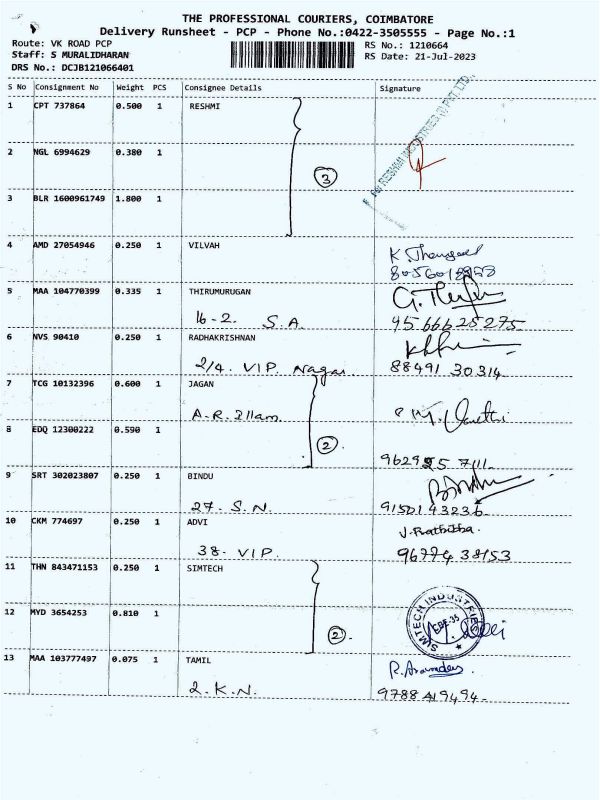 THE PROFESSIONAL COURIERS, COIMBATORE
Delivery Runsheet - PCP - Phone No.:0422-3505555 - Page No.:1
Route: VK ROAD PCP
RS No.: 1210664
Staff: S MURALIDHARAN
RS Date: 21-Jul-2023
DRS No.: DCJB121066401
S No Consignment No Weight PCS Consignee Details Signature
1 CPT 737864 0.500 1 RESHMI
2 NGL 6994629 0.380 1
3
3 BLR 1600961749 1.800 1
RESHMI INDUSTRIES (I) PVT. LTD.
4 AMD 27054946 0.250 1 VILVAH
5 MAA 104770399 0.335 1 THIRUMURUGAN
16-2. S.A.
6 NVS 90410 0.250 1 RADHAKRISHNAN
2/4. VIP. Nagar
88491 30314
7 TCG 10132396 0.600 1 JAGAN
A-R. Illam.
8 EDQ 12300222 0.590 1
2
9 SRT 302023807 0.250 1 BINDU
27- S.N.
9150143236
10 CKM 774697 0.250 1 ADVI
38- VIP.
11 THN 843471153 0.250 1 SIMTECH
12 MYD 3654253 0.810 1
2
SIMTECH INDUSTRIES
13 MAA 103777497 0.075 1 TAMIL
2. K.N.
9788419494